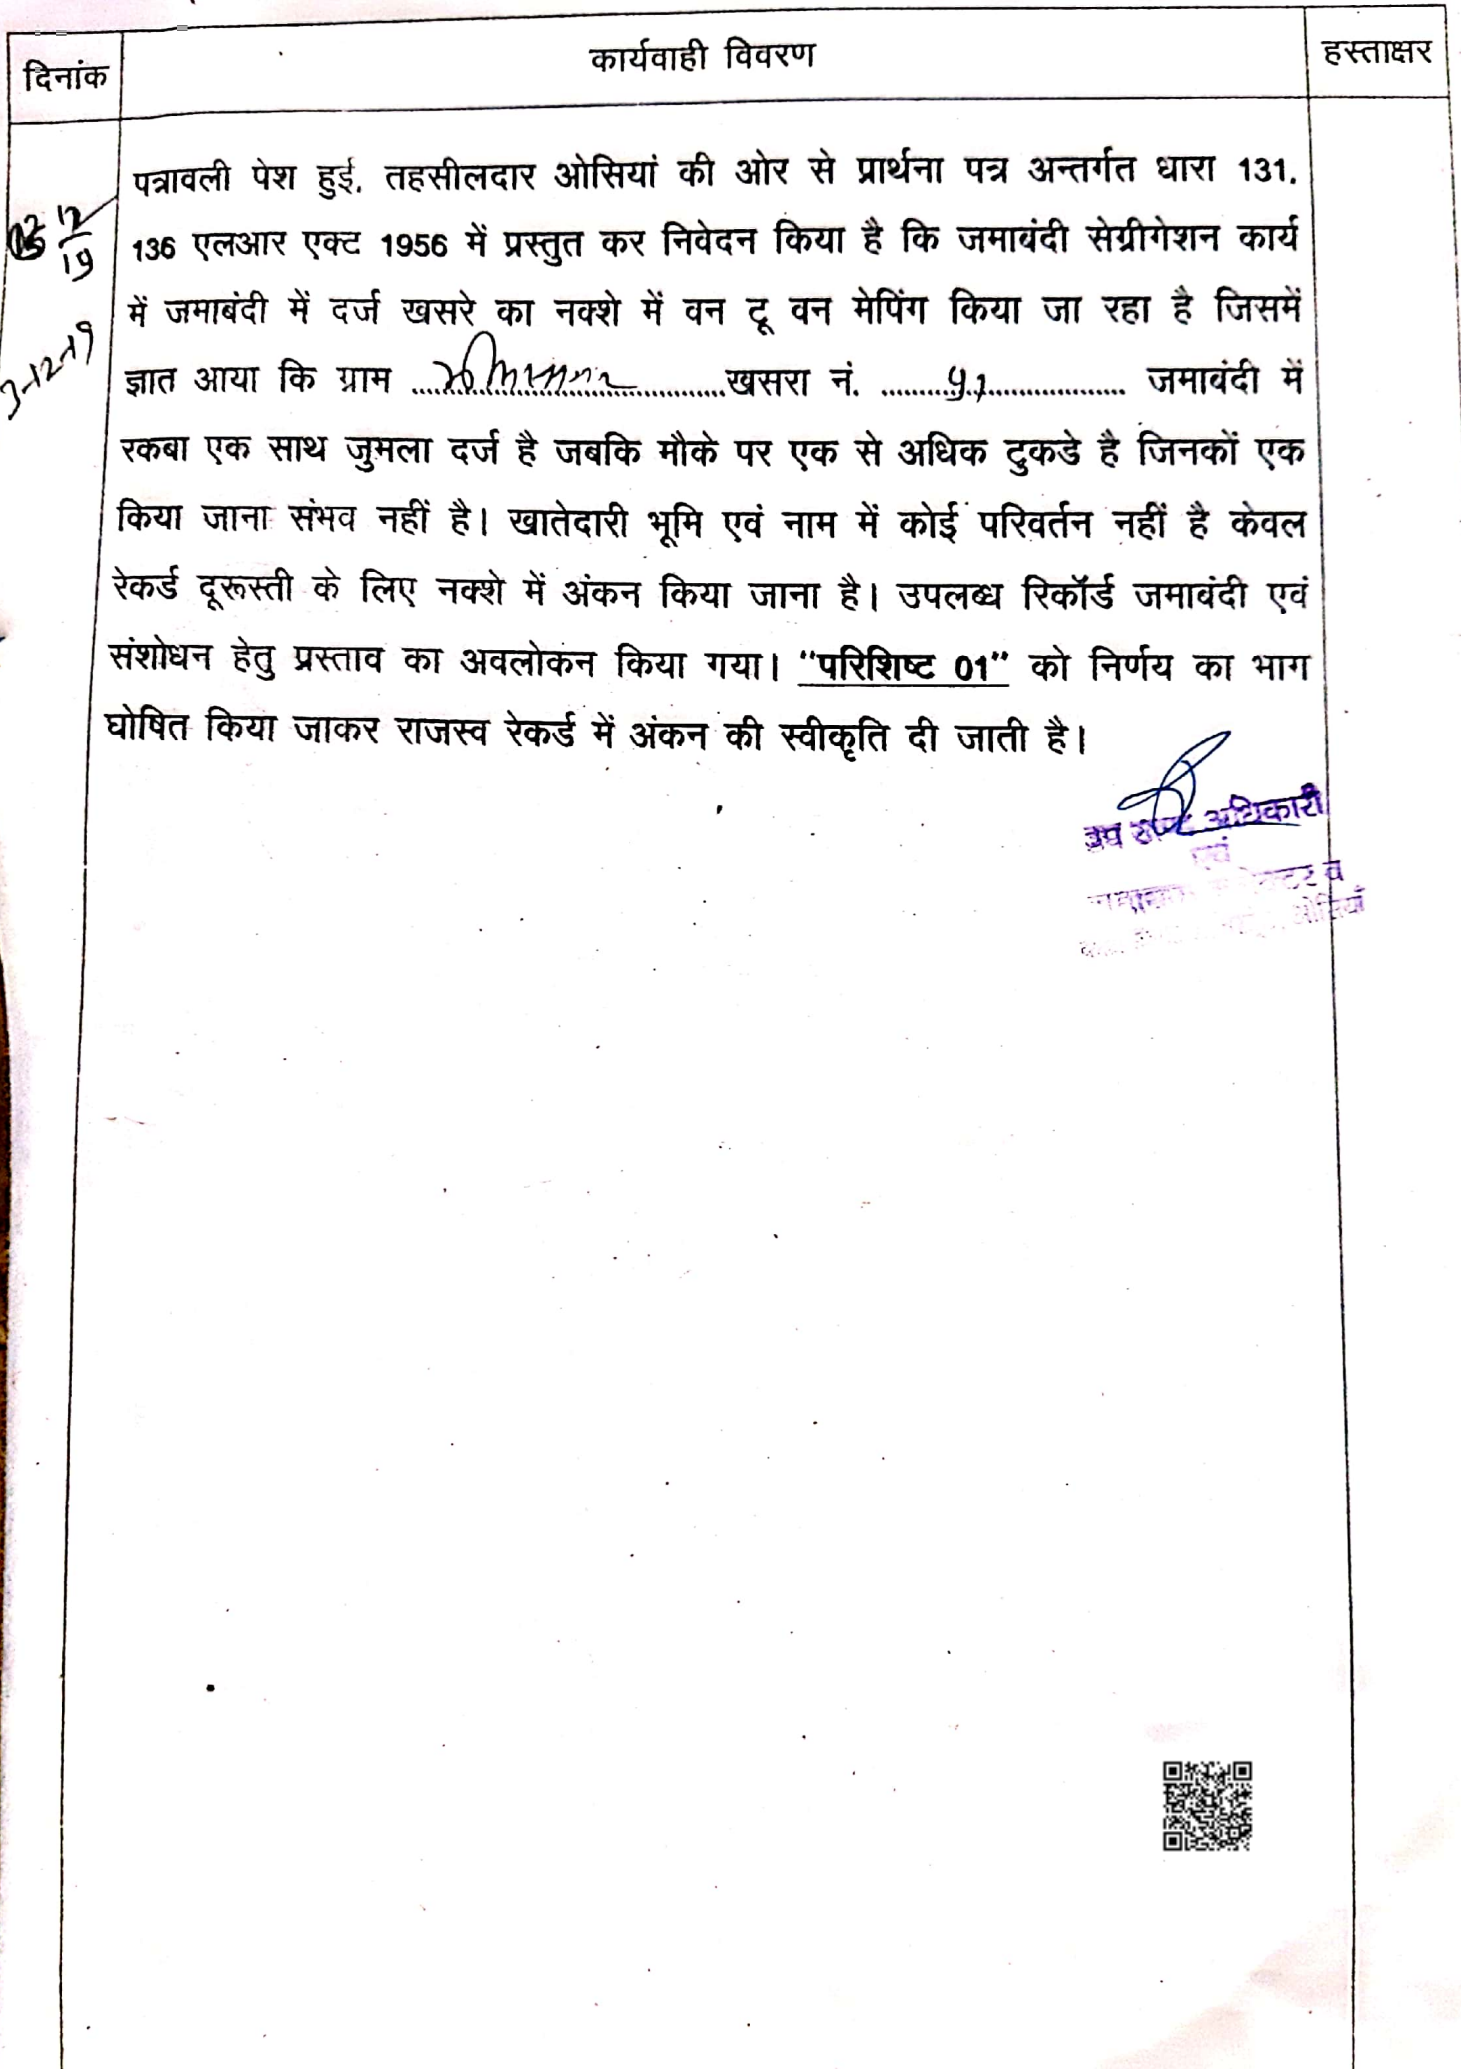 दिनांक
कार्यवाही विवरण
हस्ताक्षर
पत्रावली पेश हुई. तहसीलदार ओसियां की ओर से प्रार्थना पत्र अन्तर्गत धारा 131.
12
19
136 एलआर एक्ट 1956 में प्रस्तुत कर निवेदन किया है कि जमाबंदी सेग्रीगेशन कार्य
में जमाबंदी में दर्ज खसरे का नक्शे में वन टू वन मेपिंग किया जा रहा है जिसमें
3-12-19
ज्ञात आया कि ग्राम ..........खसरा नं. .......... जमाबंदी में
रकबा एक साथ जुमला दर्ज है जबकि मौके पर एक से अधिक टुकडे है जिनकों एक
किया जाना संभव नहीं है। खातेदारी भूमि एवं नाम में कोई परिवर्तन नहीं है केवल
रेकर्ड दूरूस्ती के लिए नक्शे में अंकन किया जाना है। उपलब्ध रिकॉर्ड जमाबंदी एवं
संशोधन हेतु प्रस्ताव का अवलोकन किया गया। "परिशिष्ट 01" को निर्णय का भाग
घोषित किया जाकर राजस्व रेकर्ड में अंकन की स्वीकृति दी जाती है।
उप खण्ड अधिकारी
एवं
ओसियाँ